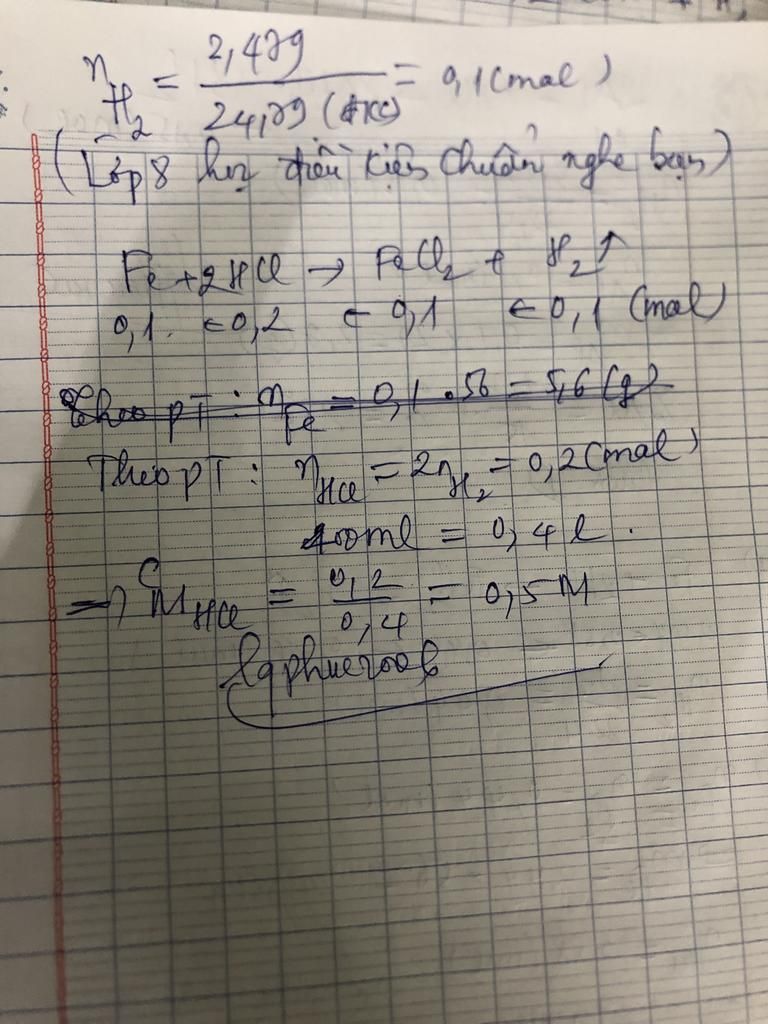 nH₂ = 2,479 / 24,79 (đkc) = 0,1 (mol)
(Lớp 8 học điều kiện chuẩn nghe bạn)
Fe + 2HCl → FeCl₂ + H₂↑
0,1 ← 0,2 ← 0,1 ← 0,1 (mol)
Theo pT : nFe = 0,1 . 56 = 5,6 (g)
Theo pT : nHCl = 2nH₂ = 0,2 (mol)
400ml = 0,4 l .
=> CM HCl = 0,2 / 0,4 = 0,5 M